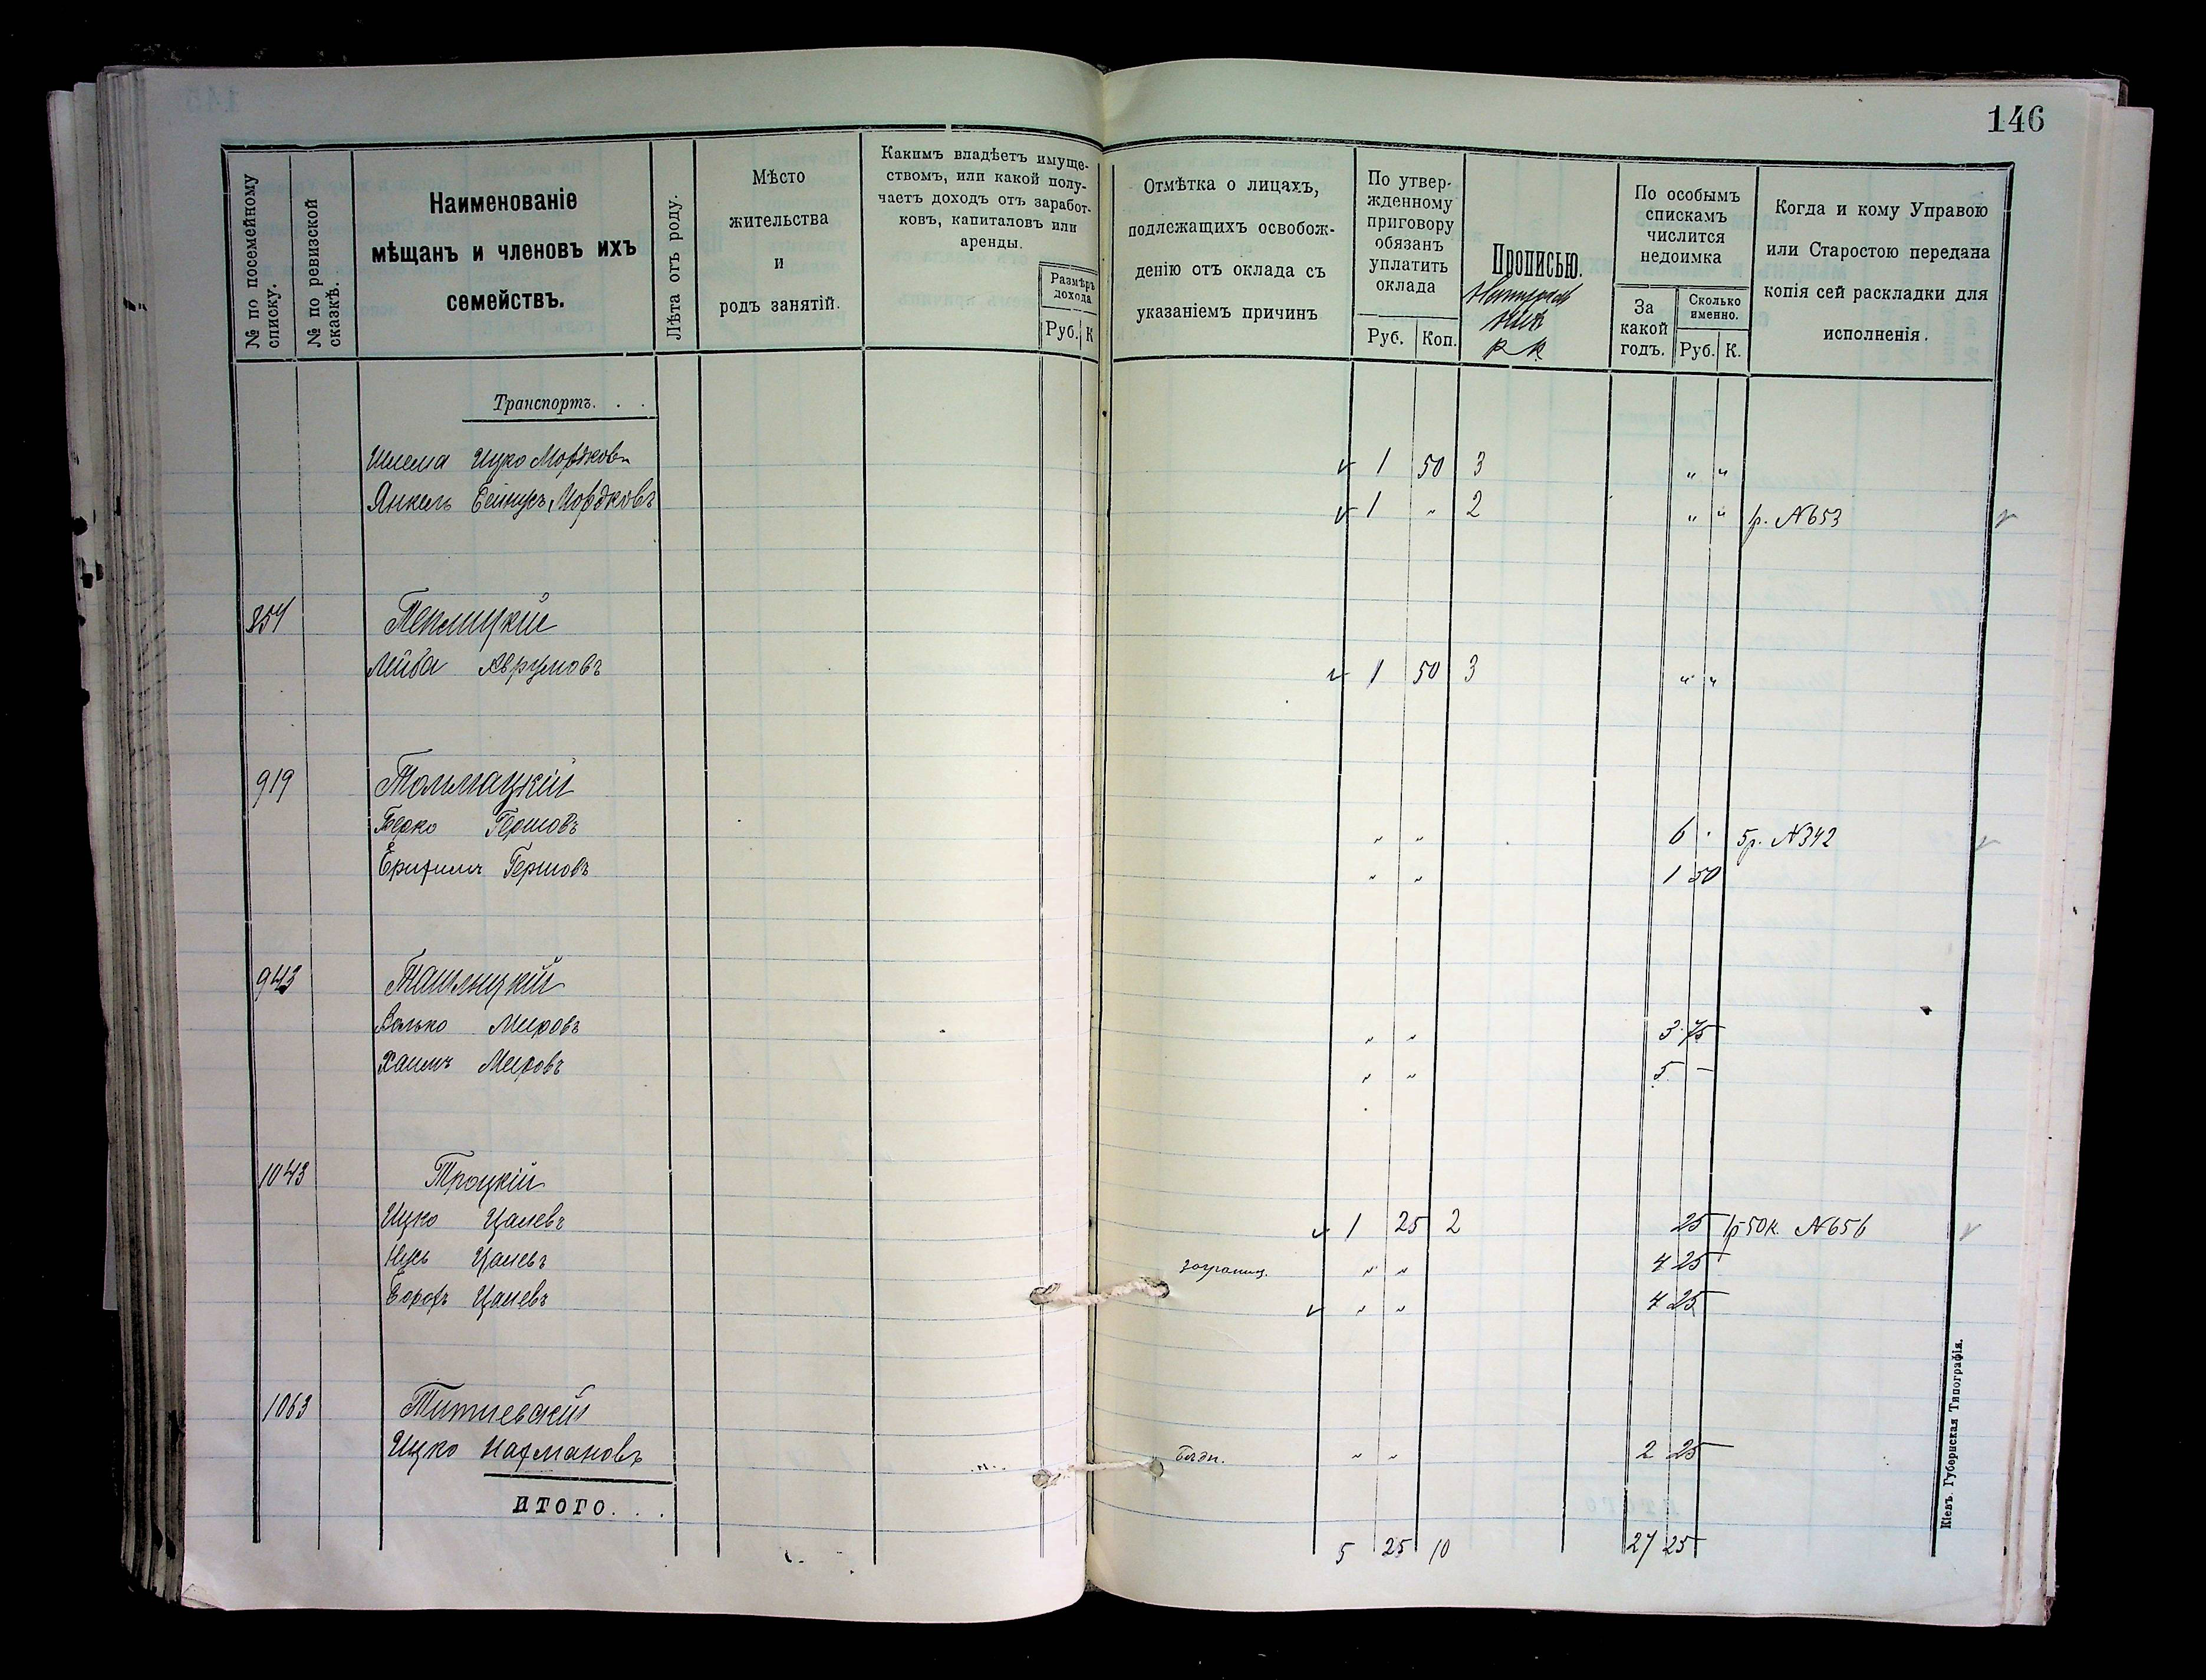 146
№ по посемейному списку.
№ по ревизской сказкѣ.
Наименованіе
мѣщанъ и членовъ ихъ
семействъ.
Лѣта отъ роду.
Мѣсто
жительства
и
родъ занятій.
Какимъ владѣетъ имуще-
ствомъ, или какой полу-
чаетъ доходъ отъ заработ-
ковъ, капиталовъ или
аренды.
Размѣръ
дохода
Руб. К
Отмѣтка о лицахъ,
подлежащихъ освобож-
денію отъ оклада съ
указаніемъ причинъ
По утвер-
жденному
приговору
обязанъ
уплатить
оклада
Руб. Коп.
Прописью.
По особымъ
спискамъ
числится
недоимка
За
какой
годъ.
Сколько
именно.
Руб. К.
Когда и кому Управою
или Старостою передана
копія сей раскладки для
исполненія.
Транспортъ. . .
Ицко Мордковъ 1 50 3 " "
Янкель Мордковъ 1 " 2 " " р. №653
854 Теплицкій
Лейба Аврумовъ 1 50 3 " "
919 Толмацкій
Берко Гершовъ " " 6 5р. №342
Гершовъ " " 1 50
943 Ташлыцкій
Волько Мееровъ " " 3 75
Хаимъ Мееровъ " " 5 -
1043 Троцкій
Ицко Цалевъ 1 25 2 25 1р 50к. №656
Нусь Цалевъ заграниц. " " 4 25
Борохъ Цалевъ " " 4 25
1063 Титіевскій
Ицко Нахмановъ бѣдн. " " 2 25
ИТОГО. . .
5 25 10 27 25
Кіевъ. Губернская Типографія.